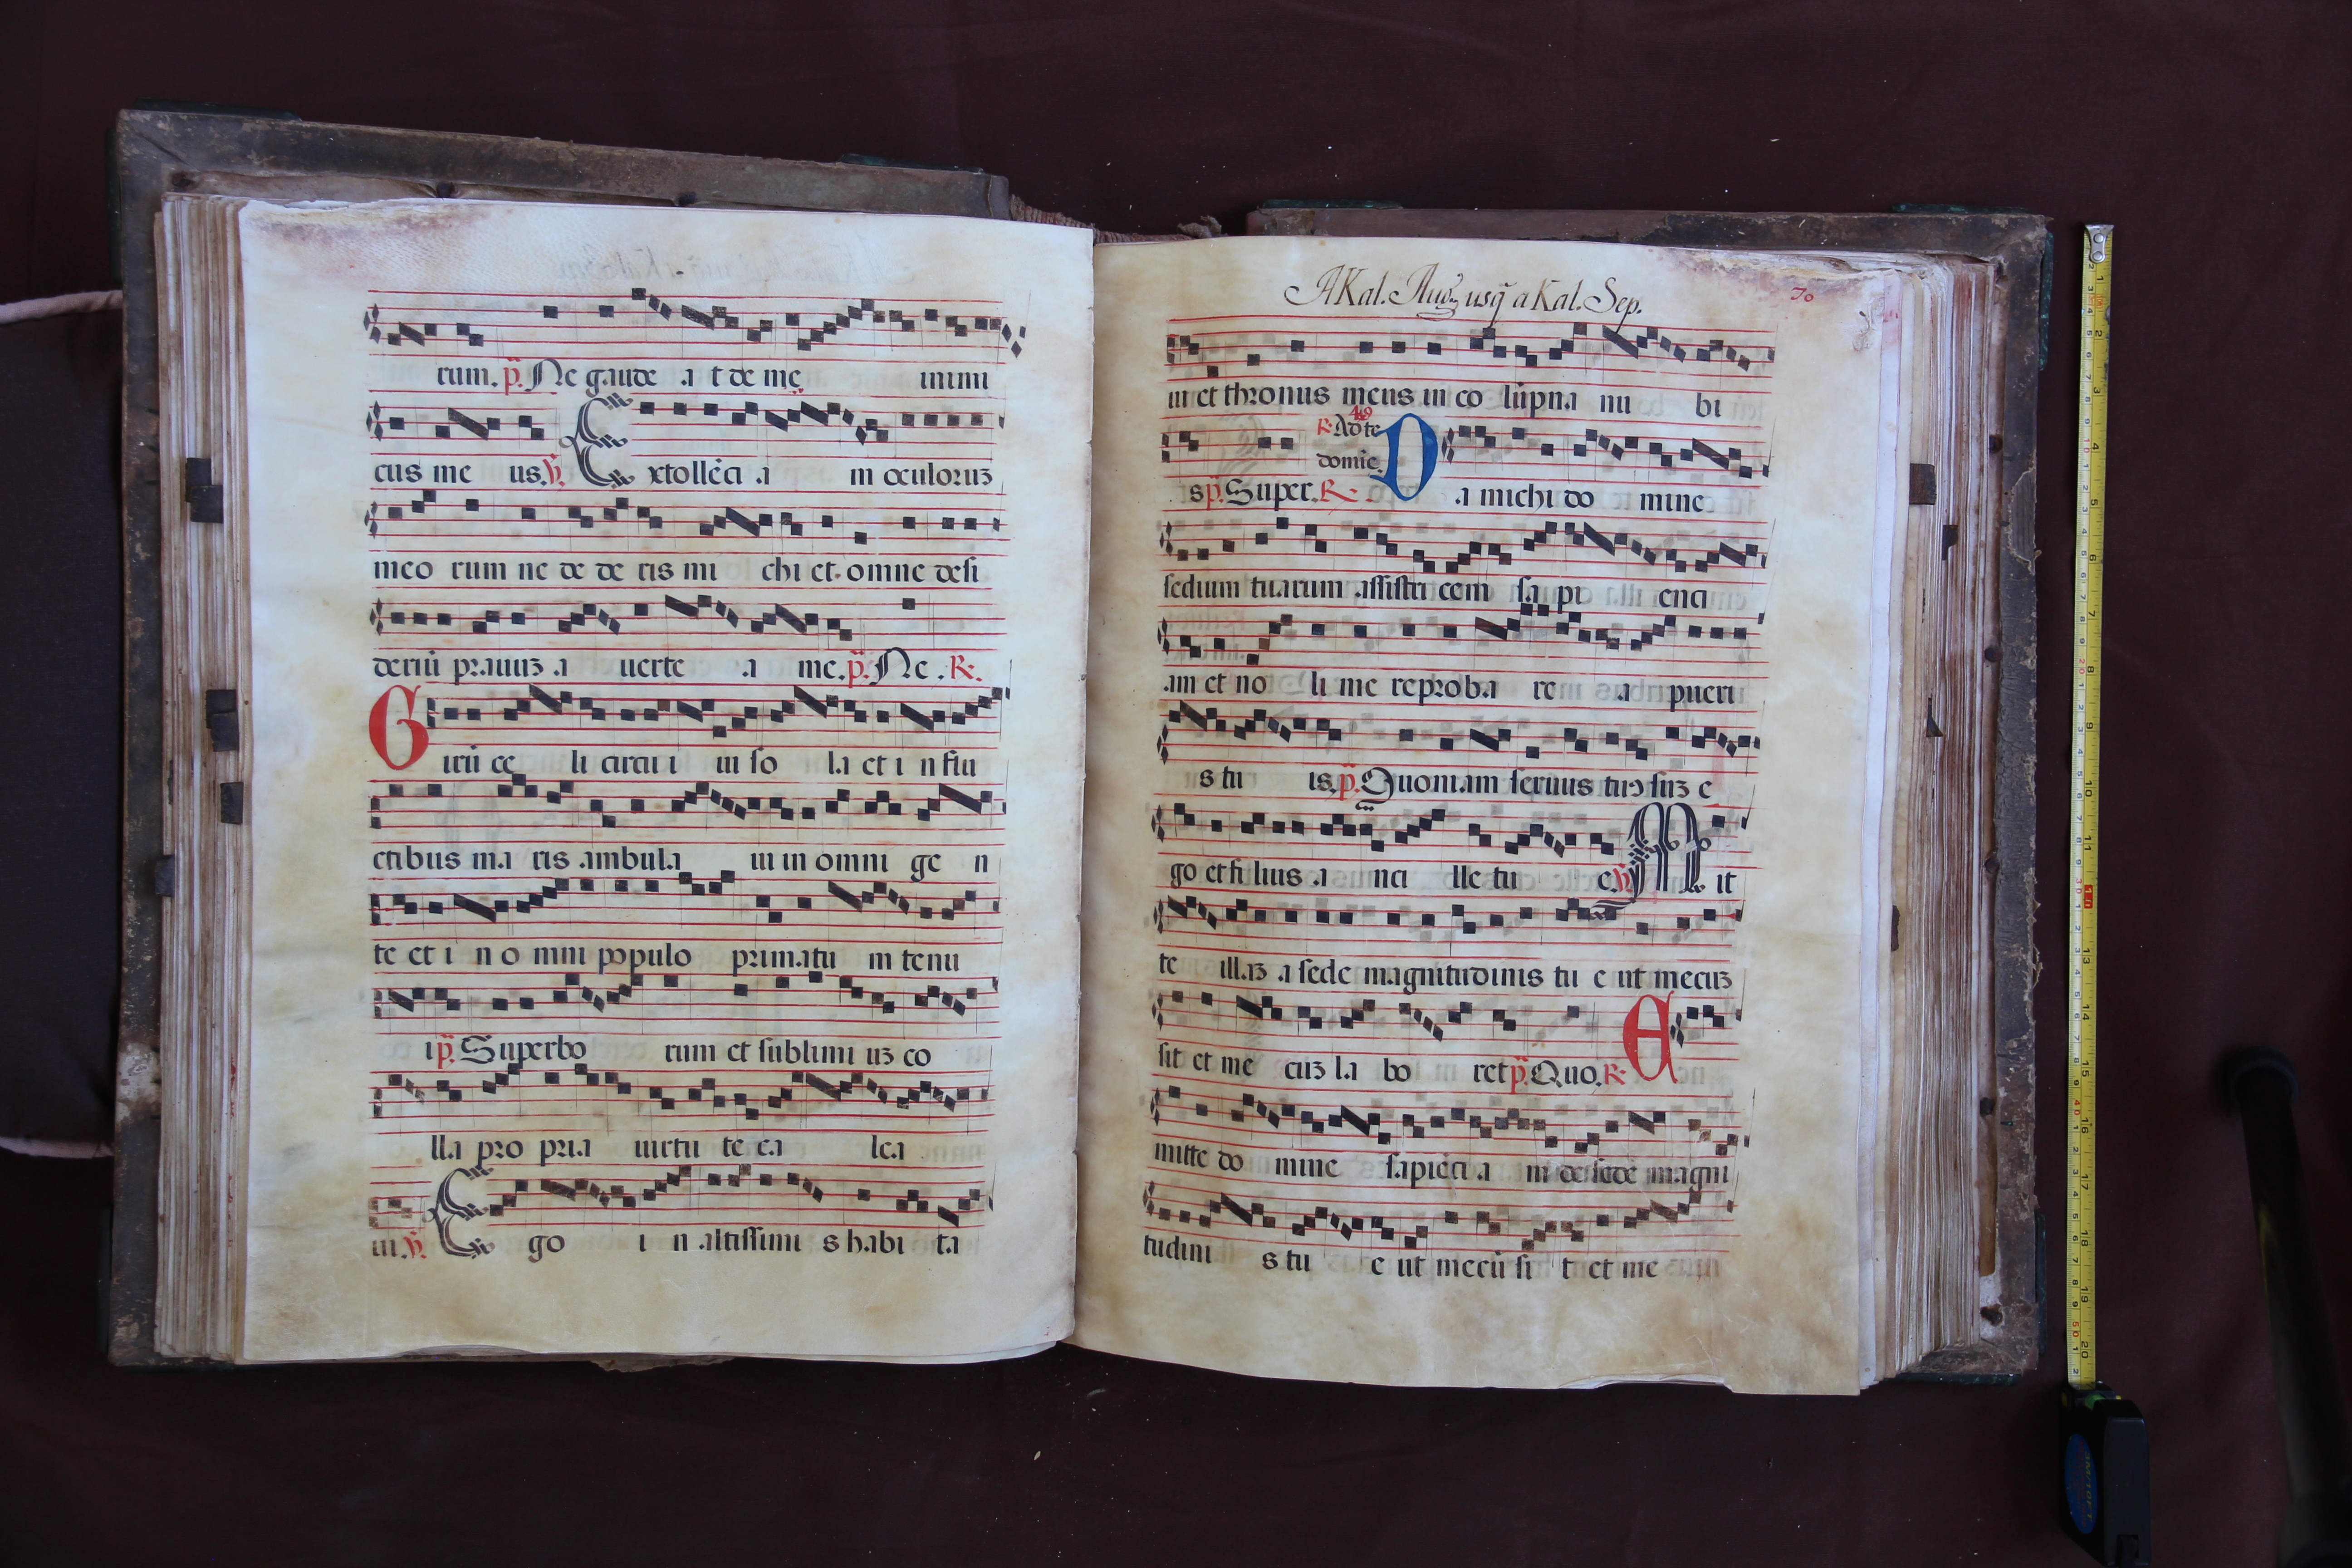 rum. p. Ne gaude a t de me inimi
cus me us. V. Extollēci a m oculoruʒ
meo rum ne de de ris mi chi et omne desi
deriū prauuʒ a uerte a me. p. Ne. R.
Girū ce li circui ui so la et i n flu
ctibus ma ris ambula ui in omni ge n
te et i n o mni populo primatu m tenu
i p. Superbo rum et sublimi uʒ co
lla pro pria uirtu te ca lca
ui. V. Ego i n altissimi s habi ta
A Kal. Aug. usq̄ a Kal. Sep.
70
ui et thronus meus in co lūpna nu bi
R. Ad te
domīe.
s p. Super. R. Da michi do mine
sedium tuarum assistricem sa pi enci
am et no li me reproba re a pueri
s tu is. p. Quoniam seruus tuꝰ suʒ e
go et filius a nci lle tu e V. Mit
te illaʒ a sede magnitudinis tu e ut mecuʒ
sit et me cuʒ la bo ret p. Quo. R. E
mitte do mine sapiēci a m de sede magni
tudini s tu e ut mecū si t et me